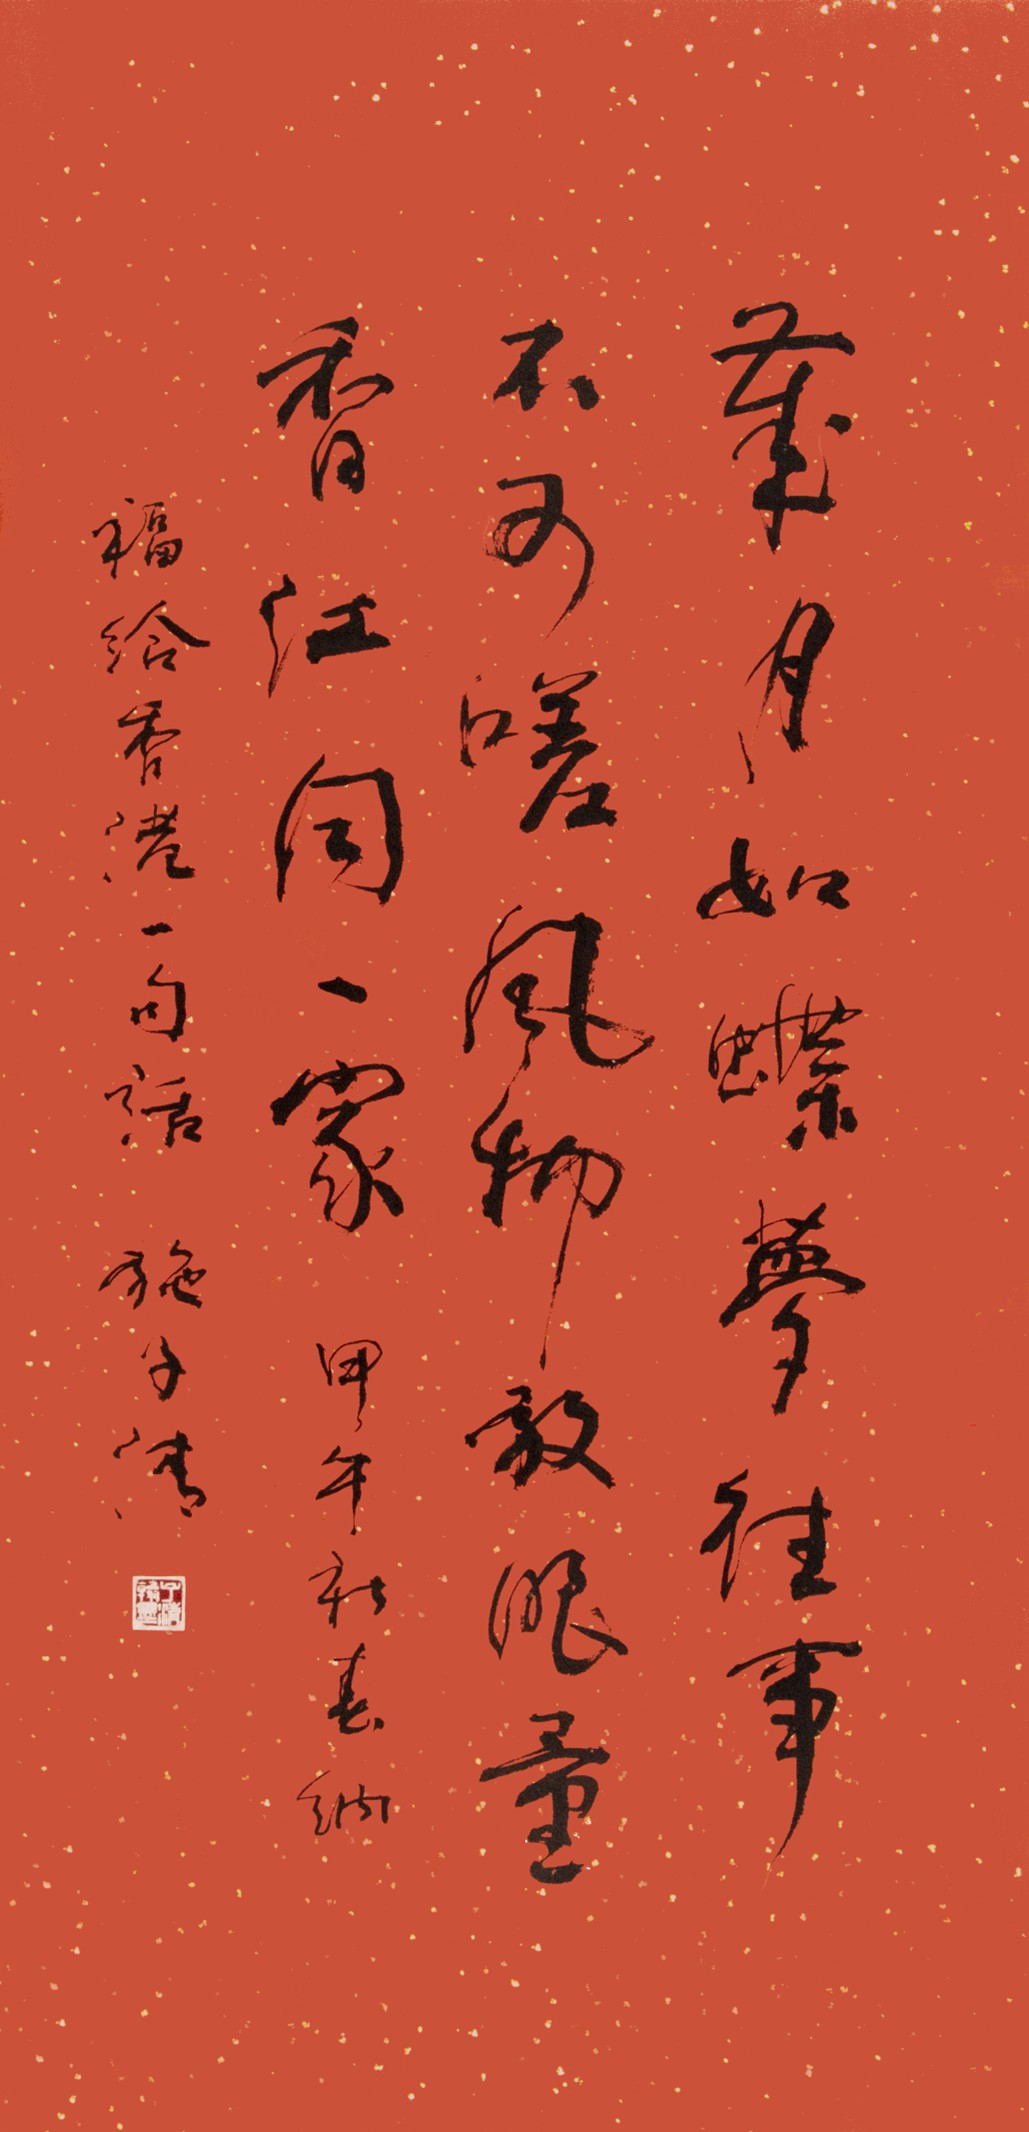 歲月如蝶夢往事
不可嗟風物教眼量
香江同一家 甲午新春納
福給香港一句話 施子清